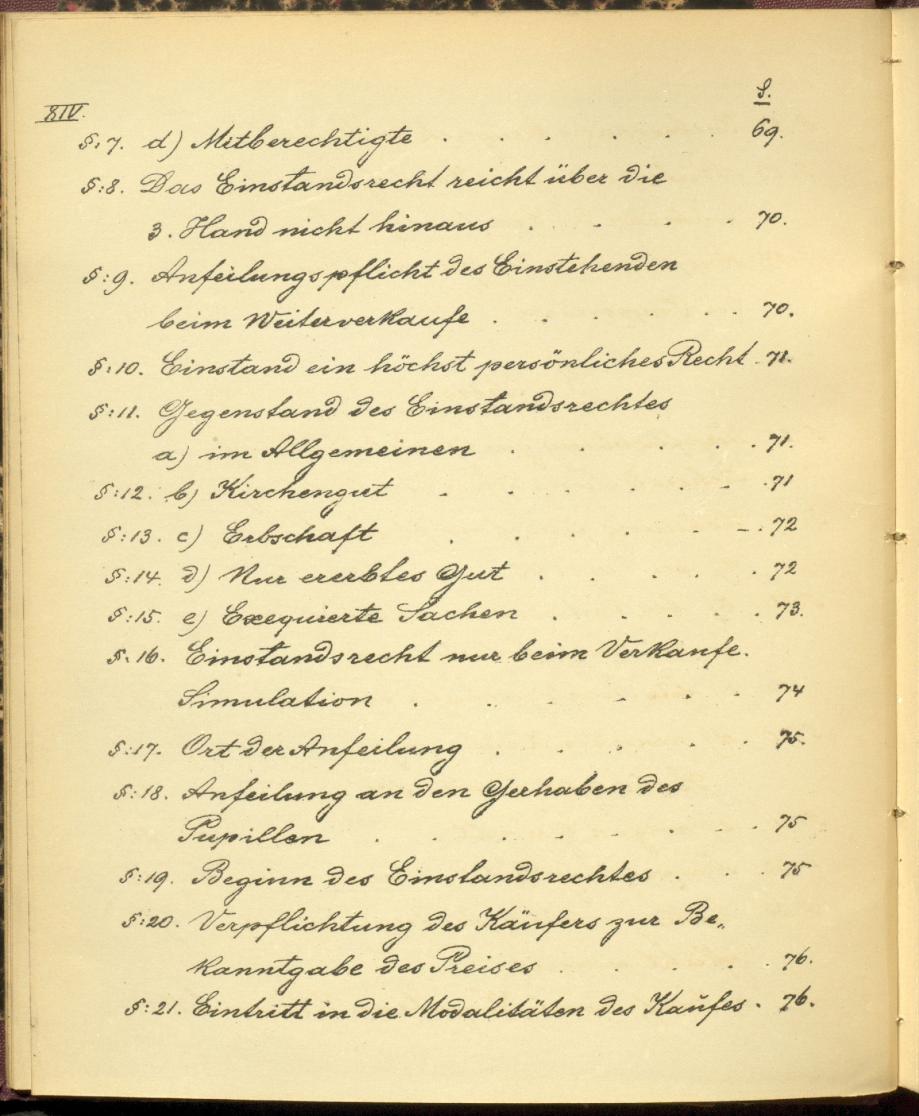 XIV.
S.
§:7. d) Mitberechtigte . . . . . . 69.
§:8. Das Einstandsrecht reicht über die
3. Hand nicht hinaus . . . . 70.
§:9. Anfeilungspflicht des Einstehenden
beim Weiterverkaufe . . . . . . 70.
§:10. Einstand ein höchst persönliches Recht . 71.
§:11. Gegenstand des Einstandsrechtes
a) im Allgemeinen . . . . . 71.
§:12. b) Kirchengut . . . . . . 71
§:13. c) Erbschaft . . . . . . 72
§:14. d) Nur ererbtes Gut . . . . . 72
§:15. e) Exequierte Sachen . . . . . 73.
§:16. Einstandsrecht nur beim Verkaufe.
Simulation . . . . . . 74
§:17. Ort der Anfeilung . . . . . 75.
§:18. Anfeilung an den Gerhaben des
Pupillen . . . . . . . . 75
§:19. Beginn des Einstandsrechtes . . . 75
§:20. Verpflichtung des Käufers zur Be„
kanntgabe des Preises . . . . . 76.
§:21. Eintritt in die Modalitäten des Kaufes . 76.